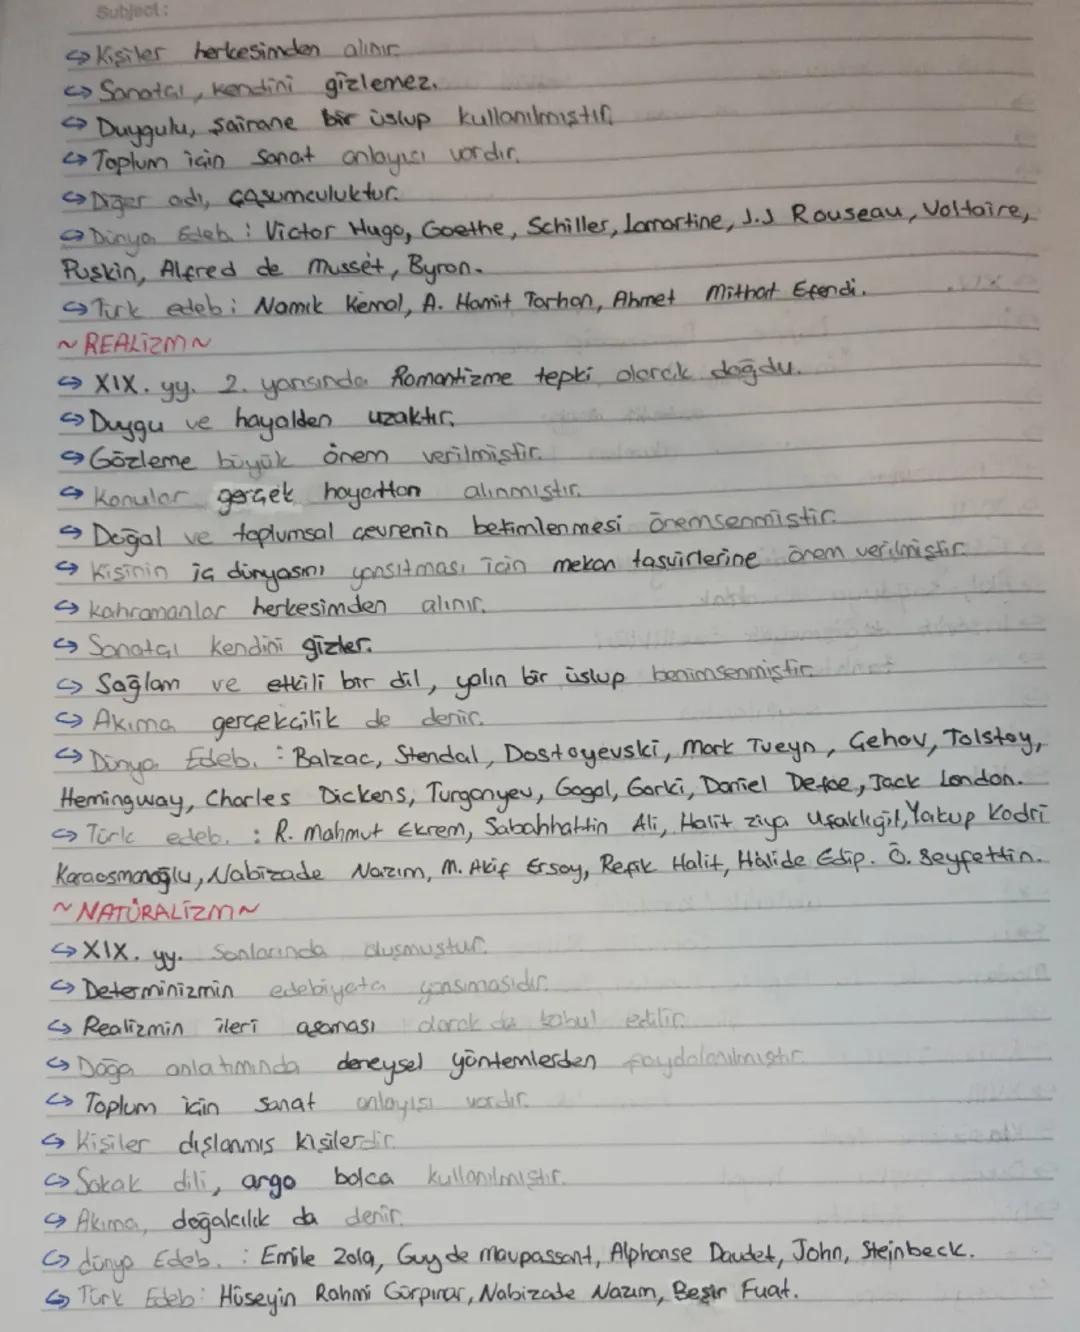 Subject:
↪ Kişiler herkesimden alınır.
↪ Sanatçı, kendini gizlemez.
↪ Duygulu, şairane bir üslup kullanılmıştır.
↪ Toplum için sanat anlayışı vardır.
↪ Diğer adı, çoşumculuktur.
↪ Dünya Edeb. : Victor Hugo, Goethe, Schiller, Lamartine, J.J Rouseau, Voltaire,
Puşkin, Alfred de Musset, Byron.
↪ Türk edeb : Namık Kemal, A. Hamit Tarhan, Ahmet Mithat Efendi.
~ REALİZM ~
↪ XIX. yy. 2. yarısında Romantizme tepki olarak doğdu.
↪ Duygu ve hayalden uzaktır.
↪ Gözleme büyük önem verilmiştir.
↪ Konular gerçek hayattan alınmıştır.
↪ Doğal ve toplumsal çevrenin betimlenmesi önemsenmiştir.
↪ Kişinin iç dünyasını yansıtması için mekan tasvirlerine önem verilmiştir.
↪ Kahramanlar herkesimden alınır.
↪ Sanatçı kendini gizler.
↪ Sağlam ve etkili bir dil, yalın bir üslup benimsenmiştir.
↪ Akıma gerçekçilik de denir.
↪ Dünya Edeb. : Balzac, Stendal, Dostoyevski, Mark Tveyn, Çehov, Tolstoy,
Hemingway, Charles Dickens, Turganyev, Gogol, Gorki, Daniel Defoe, Jack London.
↪ Türk edeb. : R. Mahmut Ekrem, Sabahhattin Ali, Halit ziya Uşaklıgil, Yakup Kadri
Karaosmanoğlu, Nabizade Nazım, M. Akif Ersoy, Refik Halit, Halide Edip. Ö. Seyfettin.
~ NATÜRALİZM ~
↪ XIX. yy. Sonlarında oluşmuştur.
↪ Determinizmin edebiyata yansımasıdır.
↪ Realizmin ileri aşaması olarak da kabul edilir.
↪ Doğa anlatımında deneysel yöntemlerden faydalanılmıştır.
↪ Toplum için sanat anlayışı vardır.
↪ Kişiler dışlanmış kişilerdir.
↪ Sokak dili, argo bolca kullanılmıştır.
↪ Akıma, doğalcılık da denir.
↪ dünya Edeb. : Emile Zola, Guy de Maupassant, Alphonse Daudet, John, Steinbeck.
↪ Türk Edeb : Hüseyin Rahmi Gürpınar, Nabizade Nazım, Beşir Fuat.